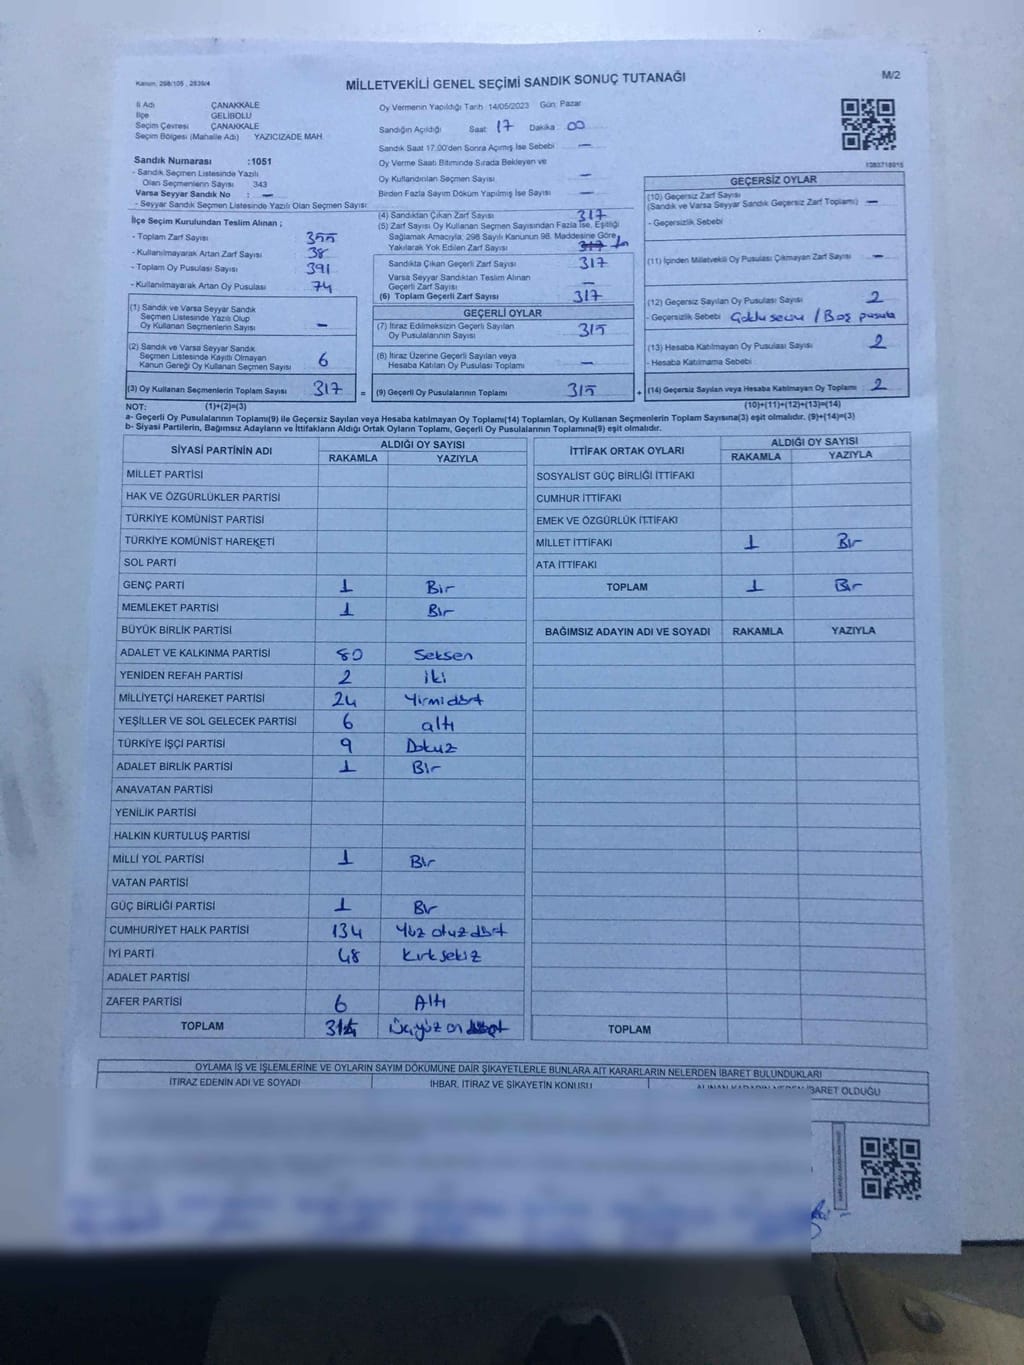 Kanun, 298/105 , 2839/4
MİLLETVEKİLİ GENEL SEÇİMİ SANDIK SONUÇ TUTANAĞI
M/2
İl Adı ÇANAKKALE
İlçe GELİBOLU
Seçim Çevresi ÇANAKKALE
Seçim Bölgesi (Mahalle Adı) YAZICIZADE MAH.
Sandık Numarası :1051
- Sandık Seçmen Listesinde Yazılı
Olan Seçmenlerin Sayısı 343
Varsa Seyyar Sandık No : –
- Seyyar Sandık Seçmen Listesinde Yazılı Olan Seçmen Sayısı
İlçe Seçim Kurulundan Teslim Alınan ;
- Toplam Zarf Sayısı 355
- Kullanılmayarak Artan Zarf Sayısı 38
- Toplam Oy Pusulası Sayısı 391
- Kullanılmayarak Artan Oy Pusulası 74
(1) Sandık ve Varsa Seyyar Sandık
Seçmen Listesinde Yazılı Olup
Oy Kullanan Seçmenlerin Sayısı –
(2) Sandık ve Varsa Seyyar Sandık
Seçmen Listesinde Kayıtlı Olmayan
Kanun Gereği Oy Kullanan Seçmen Sayısı 6
(3) Oy Kullanan Seçmenlerin Toplam Sayısı 317
Oy Vermenin Yapıldığı Tarih 14/05/2023 Gün: Pazar
Sandığın Açıldığı Saat 17 Dakika 00
Sandık Saat 17.00'den Sonra Açımış İse Sebebi –
Oy Verme Saati Bitiminde Sırada Bekleyen ve
Oy Kullandırılan Seçmen Sayısı –
Birden Fazla Sayım Döküm Yapılmış İse Sayısı –
(4) Sandıktan Çıkan Zarf Sayısı 317
(5) Zarf Sayısı Oy Kullanan Seçmen Sayısından Fazla İse, Eşitliği
Sağlamak Amacıyla, 298 Sayılı Kanunun 98. Maddesine Göre
Yakılarak Yok Edilen Zarf Sayısı 317
Sandıkta Çıkan Geçerli Zarf Sayısı 317
Varsa Seyyar Sandıktan Teslim Alınan
Geçerli Zarf Sayısı –
(6) Toplam Geçerli Zarf Sayısı 317
GEÇERLİ OYLAR
(7) İtiraz Edilmeksizin Geçerli Sayılan
Oy Pusulalarının Sayısı 315
(8) İtiraz Üzerine Geçerli Sayılan veya
Hesaba Katılan Oy Pusulası Toplamı –
= (9) Geçerli Oy Pusulalarının Toplamı 315
1083718015
GEÇERSİZ OYLAR
(10) Geçersiz Zarf Sayısı
(Sandık ve Varsa Seyyar Sandık Geçersiz Zarf Toplamı) –
- Geçersizlik Sebebi
(11) İçinden Milletvekili Oy Pusulası Çıkmayan Zarf Sayısı –
(12) Geçersiz Sayılan Oy Pusulası Sayısı 2
- Geçersizlik Sebebi / Boş pusula
(13) Hesaba Katılmayan Oy Pusulası Sayısı 2
- Hesaba Katılmama Sebebi
+ (14) Geçersiz Sayılan veya Hesaba Katılmayan Oy Toplamı 2
NOT: (1)+(2)=(3) (10)+(11)+(12)+(13)=(14)
a- Geçerli Oy Pusulalarının Toplamı(9) ile Geçersiz Sayılan veya Hesaba katılmayan Oy Toplamı(14) Toplamları, Oy Kullanan Seçmenlerin Toplam Sayısına(3) eşit olmalıdır. (9)+(14)=(3)
b- Siyasi Partilerin, Bağımsız Adayların ve İttifakların Aldığı Ortak Oyların Toplamı, Geçerli Oy Pusulalarının Toplamına(9) eşit olmalıdır.
SİYASİ PARTİNİN ADI ALDIĞI OY SAYISI
RAKAMLA YAZIYLA
MİLLET PARTİSİ
HAK VE ÖZGÜRLÜKLER PARTİSİ
TÜRKİYE KOMÜNİST PARTİSİ
TÜRKİYE KOMÜNİST HAREKETİ
SOL PARTİ
GENÇ PARTİ 1 Bir
MEMLEKET PARTİSİ 1 Bir
BÜYÜK BİRLİK PARTİSİ
ADALET VE KALKINMA PARTİSİ 80 Seksen
YENİDEN REFAH PARTİSİ 2 iki
MİLLİYETÇİ HAREKET PARTİSİ 24 Yirmidört
YEŞİLLER VE SOL GELECEK PARTİSİ 6 altı
TÜRKİYE İŞÇİ PARTİSİ 9 Dokuz
ADALET BİRLİK PARTİSİ 1 Bir
ANAVATAN PARTİSİ
YENİLİK PARTİSİ
HALKIN KURTULUŞ PARTİSİ
MİLLİ YOL PARTİSİ 1 Bir
VATAN PARTİSİ
GÜÇ BİRLİĞİ PARTİSİ 1 Bir
CUMHURİYET HALK PARTİSİ 134 Yüz otuz dört
İYİ PARTİ 48 Kırk sekiz
ADALET PARTİSİ
ZAFER PARTİSİ 6 Altı
TOPLAM Üçyüz on
İTTİFAK ORTAK OYLARI ALDIĞI OY SAYISI
RAKAMLA YAZIYLA
SOSYALİST GÜÇ BİRLİĞİ İTTİFAKI
CUMHUR İTTİFAKI
EMEK VE ÖZGÜRLÜK İTTİFAKI
MİLLET İTTİFAKI 1 Bir
ATA İTTİFAKI
TOPLAM 1 Bir
BAĞIMSIZ ADAYIN ADI VE SOYADI RAKAMLA YAZIYLA
TOPLAM
OYLAMA İŞ VE İŞLEMLERİNE VE OYLARIN SAYIM DÖKÜMÜNE DAİR ŞİKAYETLERLE BUNLARA AİT KARARLARIN NELERDEN İBARET BULUNDUKLARI
İTİRAZ EDENİN ADI VE SOYADI İHBAR, İTİRAZ VE ŞİKAYETİN KONUSU ALINAN KARARIN NEDEN İBARET OLDUĞU